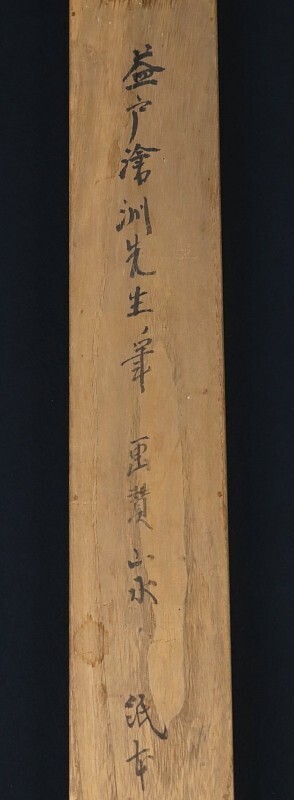 益戸滄洲先生筆 画賛山水 紙本